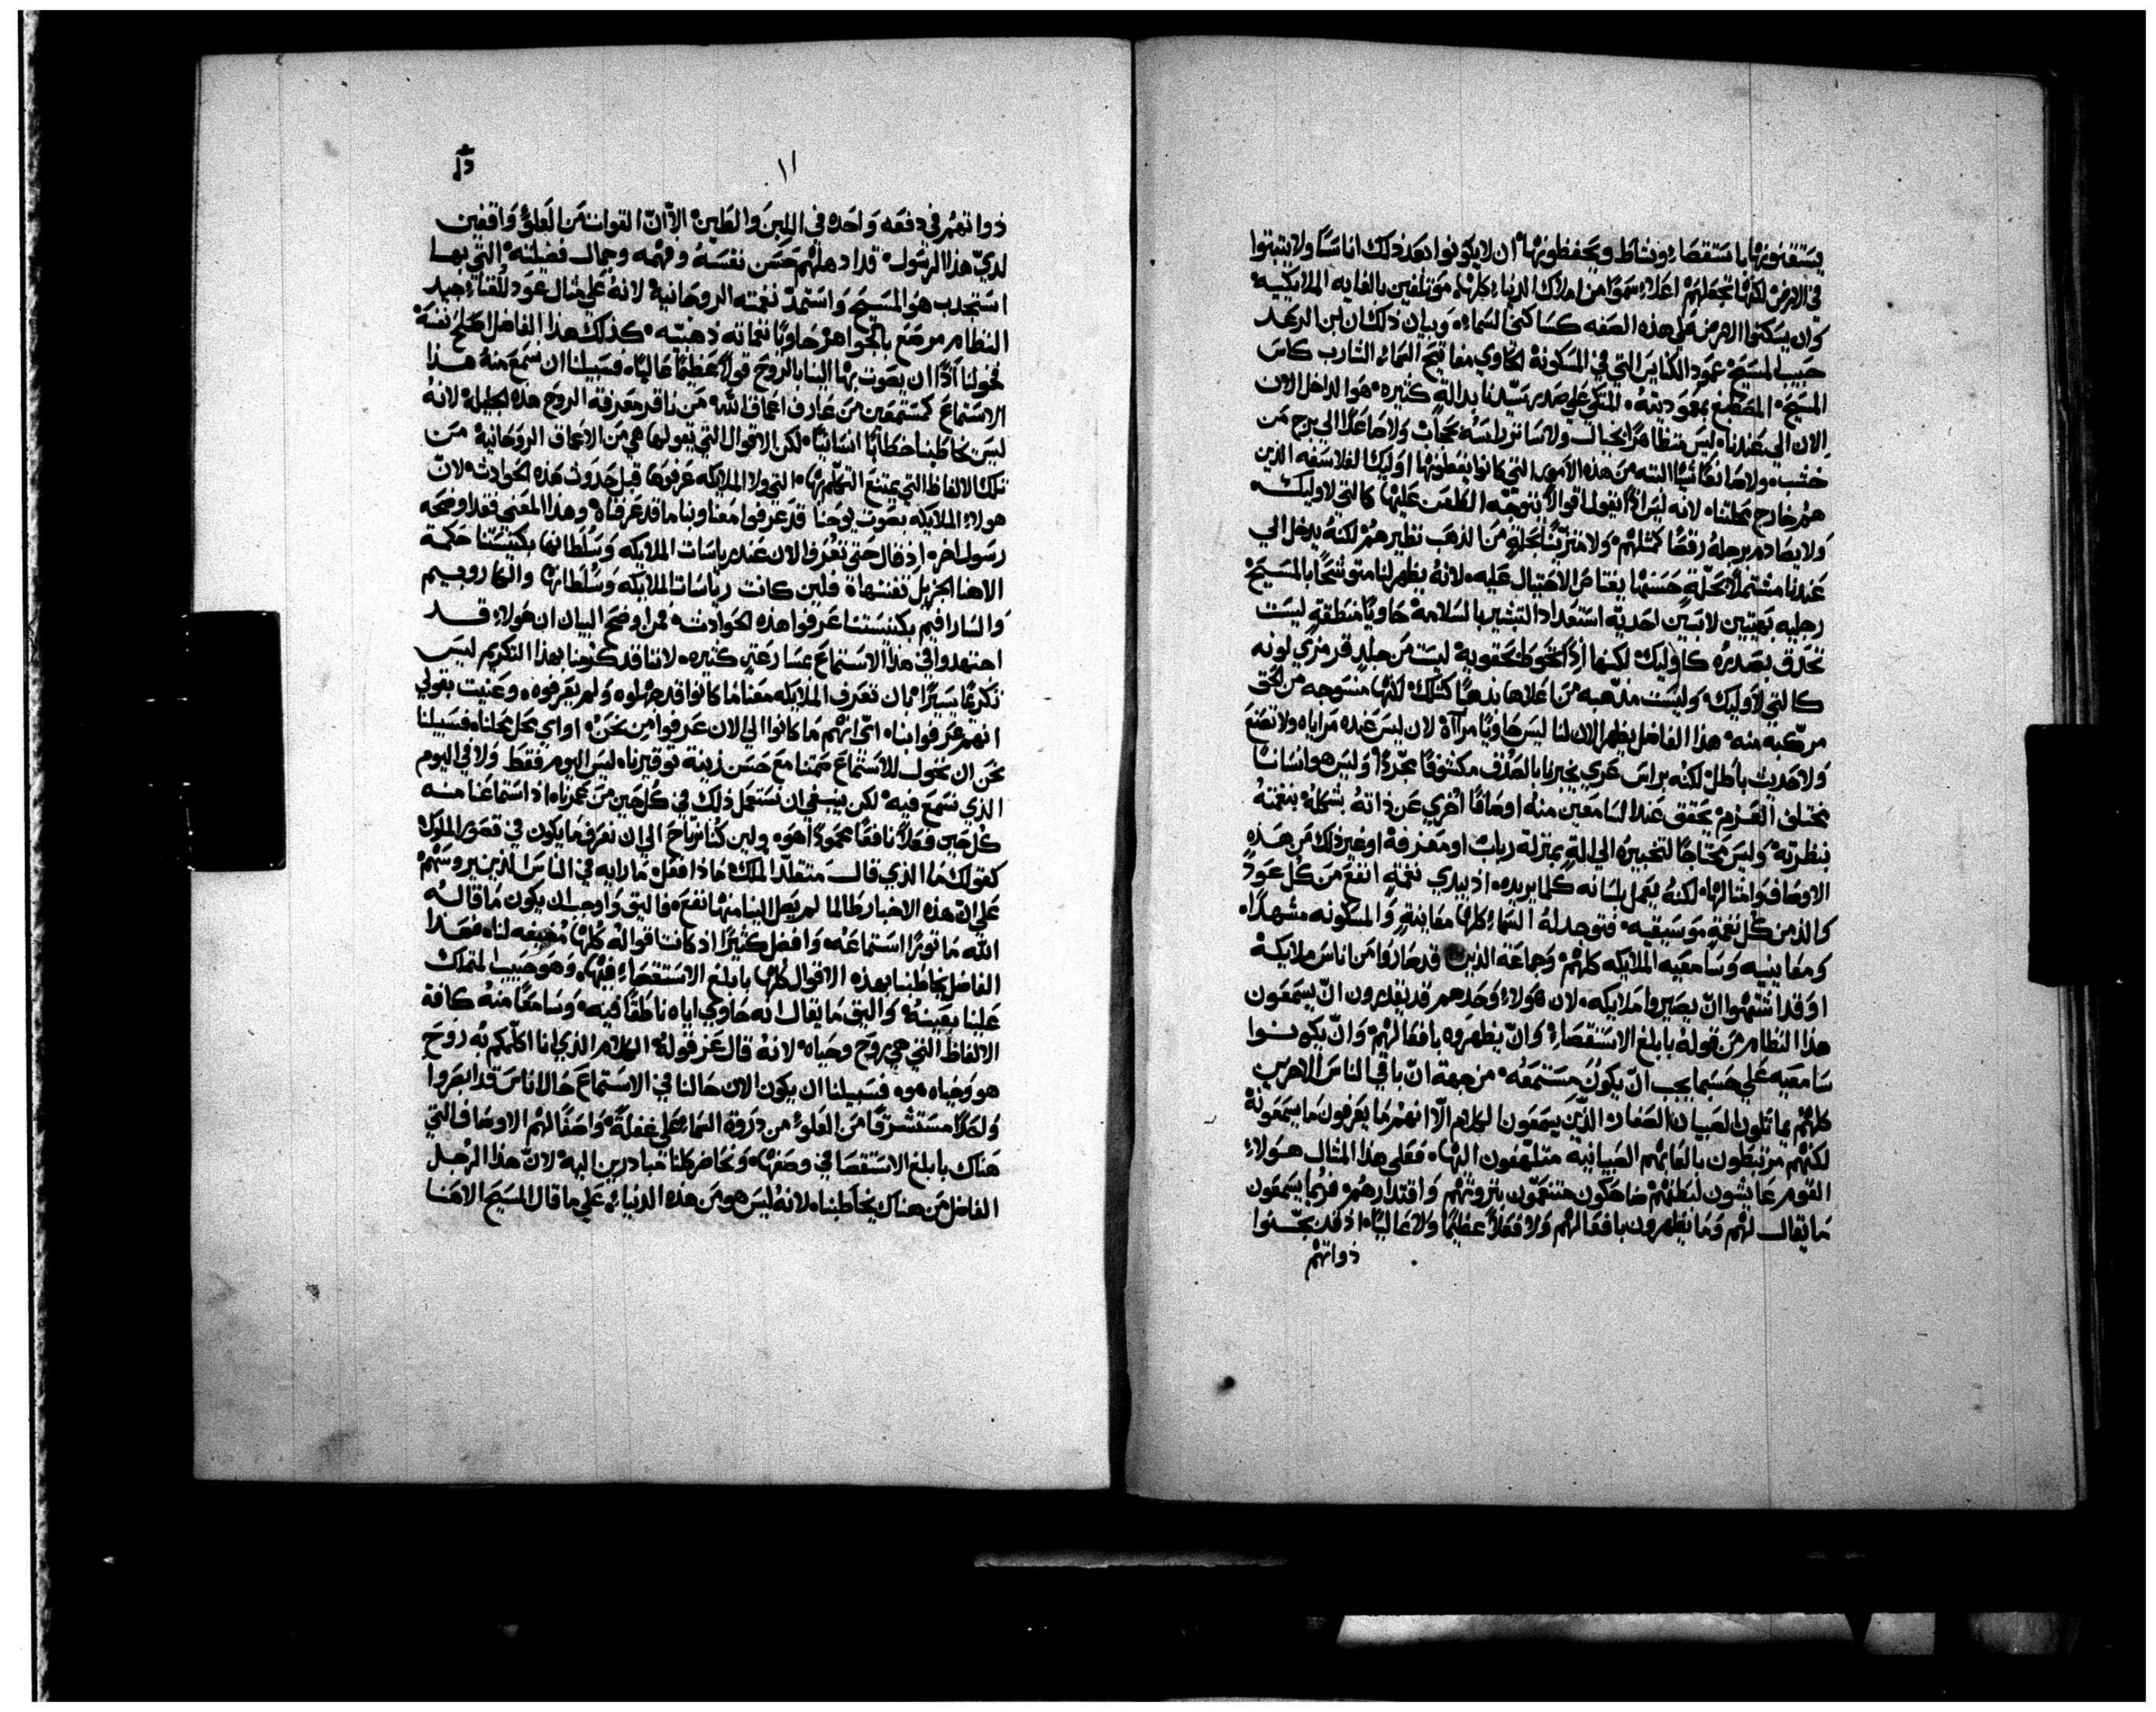 يستقنونها باستقصاء ونشاط ويحفظونها ان لا يكونوا بعد ذلك اناسًا ولا يثبتوا
في الارض لكنها تجعلهم اعلا سموًا من املاك الدنيا كلها موتلفين بالغايه الملايكيه
وان يسكنوا الارض على هذه الصفه كساكني السماء وبيان ذلك ان ابن الرعد
حبيب المسيح عمود الكنايس التي في المسكونة الحاوي مفاتيح السماء الشارب كاس
المسيح المصطبغ بمعموديته المتكي على صدر سيدنا بدالة كثيره هو الداخل الان
الان الي عندنا ليس متظاهرًا بخيال ولا ساتر راسه بحجاب ولا صاعدًا الى برج من
خشب ولا صانعًا شيًا البته من هذه الامور التي كانوا يفعلونها اوليك الفلاسفه الذين
هم خارج محلتنا لانه ليس اذًا يقول اقوالًا تتوجه الطعن عليها كالتي لاوليك
ولا يصادم برجله رقصًا كمثلهم ولا متزينًا بحلة من الذهب نظيرهم لكنه يدخل الى
عندنا مشتملًا بحلة حسنها يعتاص الاحتيال عليه لانه يظهر لنا متوشحًا بالمسيح
رجليه بهيتين لابسين احذية استعداد التبشير بالسلامة حاويًا منطقة ليست
تحدق بصدره كاوليك لكنها اذًا تحوط بحقويه ليست من جلد قرمزي لونه
كالتي لاوليك وليست مذهبه من اعلاها بذهبًا كتلك لكنها منسوجه من الحق
مركبه منه هذا الفاضل يظهر الان لنا ليس حاويًا مرآة لان ليس عنده مراياه ولا تصنع
ولا حديث باطل لكنه براس عري يخبرنا بالصدق مكشوفًا مجردًا وليس هو انسانًا
مختلف العزم يحقق عند السامعين منه اوصافًا اخري عن ذاته بشكله بنغمته
بنظرته وليس محتاجًا لتخبيره الى الة بمنزلة رباب او معزفة او غير ذلك من هذه
الاوصاف وامثالها لكنه يعمل بلسانه كلما يريده اذ يبدي نغمة انفع من كل عود
والذ من كل نغمة موسيقيه فتوجد له السماء كلها معاينة والمسكونه مشهدًا
ومعاينيه وسامعيه الملايكه كلهم وجماعة الذين قد صاروا من ناس ملايكة
او قد اشتهوا ان يصيروا ملايكه لان هولاء وحدهم قد يقدرون ان يسمعون
هذا النظام من قوله بابلغ الاستقصاء وان يظهروه بافعالهم وان يكونوا
سامعيه على حسبما يجب ان يكون مستمعه من جهة ان باقي الناس الاخرين
كلهم يماثلون الصبيان الصغار الذين يسمعون الكلام الا انهم ما يعرفون ما يسمعونه
لكنهم مرتبطون بالعابهم الصبيانية متلهفون اليها فعلى هذا المثال هولاء
القوم عايشون لبطنهم ضاحكون متنعمون بثروتهم واقتدارهم فربما يسمعون
ما يقال لهم وما يظهرون بافعالهم ولا فعلًا عظيمًا ولا عاليًا اذ قد نجسوا
ذواتهم
١١
ذواتهم في دفعه واحده في اللبن والطين الا ان القوات من العلو واقفين
لدي هذا الرسول قد ادهلهم حسن نفسه وفهمه وجمال فضيلته التي بها
استجدب هو المسيح واستمد نعمته الروحانية لانه على مثال عود للغناء جيد
النظام مرصع بالجواهر حاويًا نغماته ذهبيه كذلك هذا الفاضل اصلح نفسه
فخولنا اذًا ان يصوت بها الينا بالروح قولًا عظيمًا عاليًا فسبيلنا ان نسمع منه هذا
الاستماع كمستمعين من عارف اعماق الله من ناقد معرفة الروح هذه الجليله لانه
ليس يخاطبنا خطابًا انسانيًا لكن الاقوال التي يقولها هي من الاعماق الروحانية من
تلك الالفاظ التي يمتنع التكلم بها التي ولا الملايكه عرفوها قبل حدوث هذه الحوادث لان
هولاء الملايكه بصوت يوحنا قد عرفوا معنا وبنا ما قد عرفناه وهذا المعنى فقد اوضحه
رسول اخر اذ قال حتى تعرف الان عند رياسات الملايكه وسلطانها بكنيستنا حكمة
الاهنا الجزيل تفننها فلين كانت رياسات الملايكه وسلطاتها والكاروبيم
والسارافيم بكنيستنا عرفوا هذه الحوادث فمن اوضح البيان ان هولاء قد
اجتهدوا في هذا الاستماع بمسارعة كثيره لاننا قد كرمنا بهذا التكريم ليس
تكريمًا يسيرًا بان تعرف الملايكه معنا ما كانوا قد جهلوه ولم يعرفوه وعنيت بقولي
انهم عرفوا بنا اي انهم ما كانوا الى الان عرفوا من نحن او اي محل محلنا فسبيلنا
نحن ان نخول للاستماع صمتنا مع حسن زينة توقيرنا ليس اليوم فقط ولا في اليوم
الذي نسمع فيه لكن ينبغي ان نستعمل ذلك في كل حين من عمرنا اذ استماعنا منه
كل حين فعلًا نافعًا محمودًا هو ولين كنا نرتاح الى ان نعرف ما يكون في قصور الملوك
كقولك ما الذي قال متقلد الملك ماذا فعل ما رايه في الناس الذين يروسهم
على ان هذه الاخبار طالما لم يصل الينا منها نفع فاليق واوجب ان يكون ما قاله
الله ما نوثر استماعه وافضل كثيرًا اذ كانت اقواله كلها نافعه لنا فهذا
الفاضل يخاطبنا بهذه الاقوال كلها بابلغ الاستقصاء فيها وهو حبيب المتملك
علينا بعينه واليق ما يقال انه حاوي اياه ناطقًا فيه وسامعًا منه كافة
الالفاظ التي هي روح وحياه لانه قال عن قوله الكلام الذي انا اكلمكم به روح
هو وحياه هو فسبيلنا ان يكون الان حالنا في الاستماع حال اناس قد ابصروا
واحدًا مستشرفًا من العلو من دروة السماء على غفلة واصفًا لهم الاوصاف التي
هناك بابلغ الاستقصا في وصفها ونحاضر كلنا مبادرين اليه لان هذا الرجل
الفاضل من هناك يخاطبنا لانه ليس هو من هذه الدنيا على ما قال المسيح الاهنا